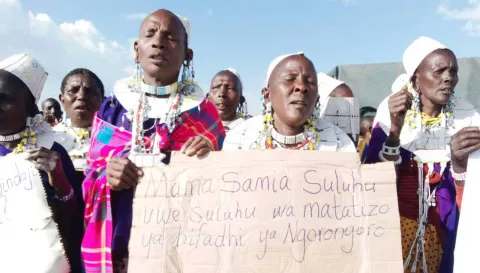 Mama Samia Suluhu
uwe Suluhu wa matatizo
ya hifadhi ya Ngorongoro